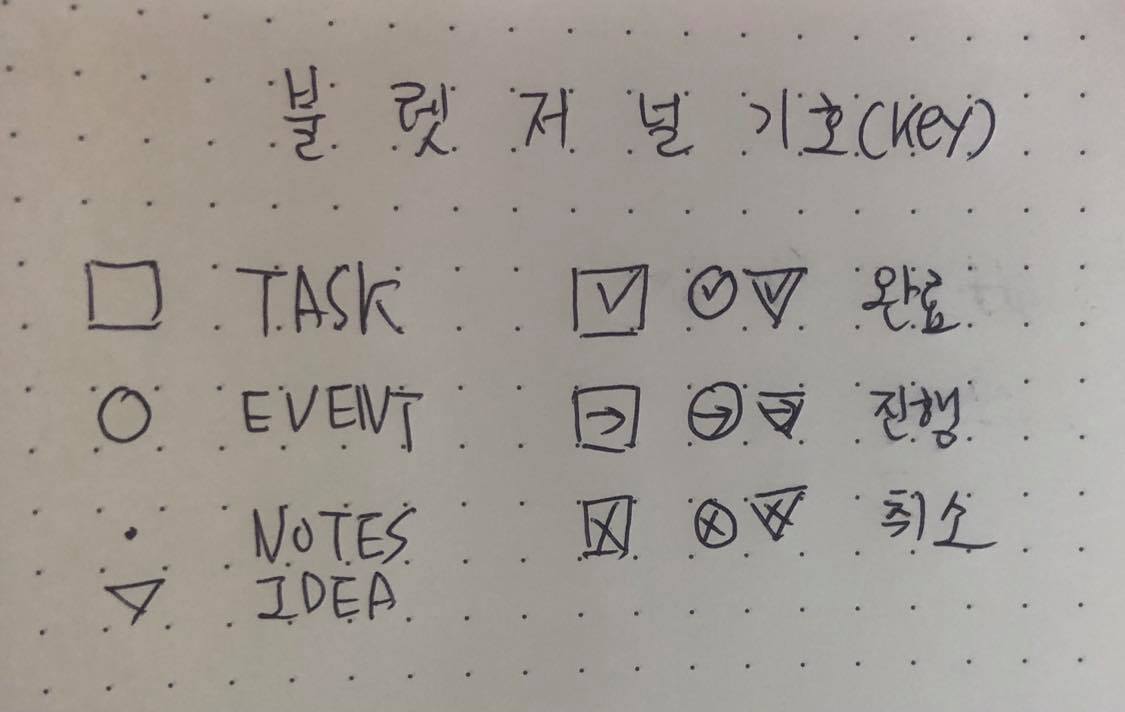 불렛저널 기호(KEY)
TASK 완료
EVENT 진행
NOTES 취소
IDEA